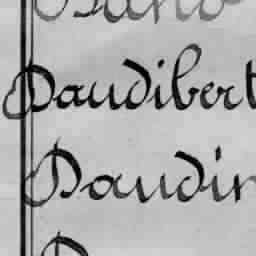 Daudibert
Daudin